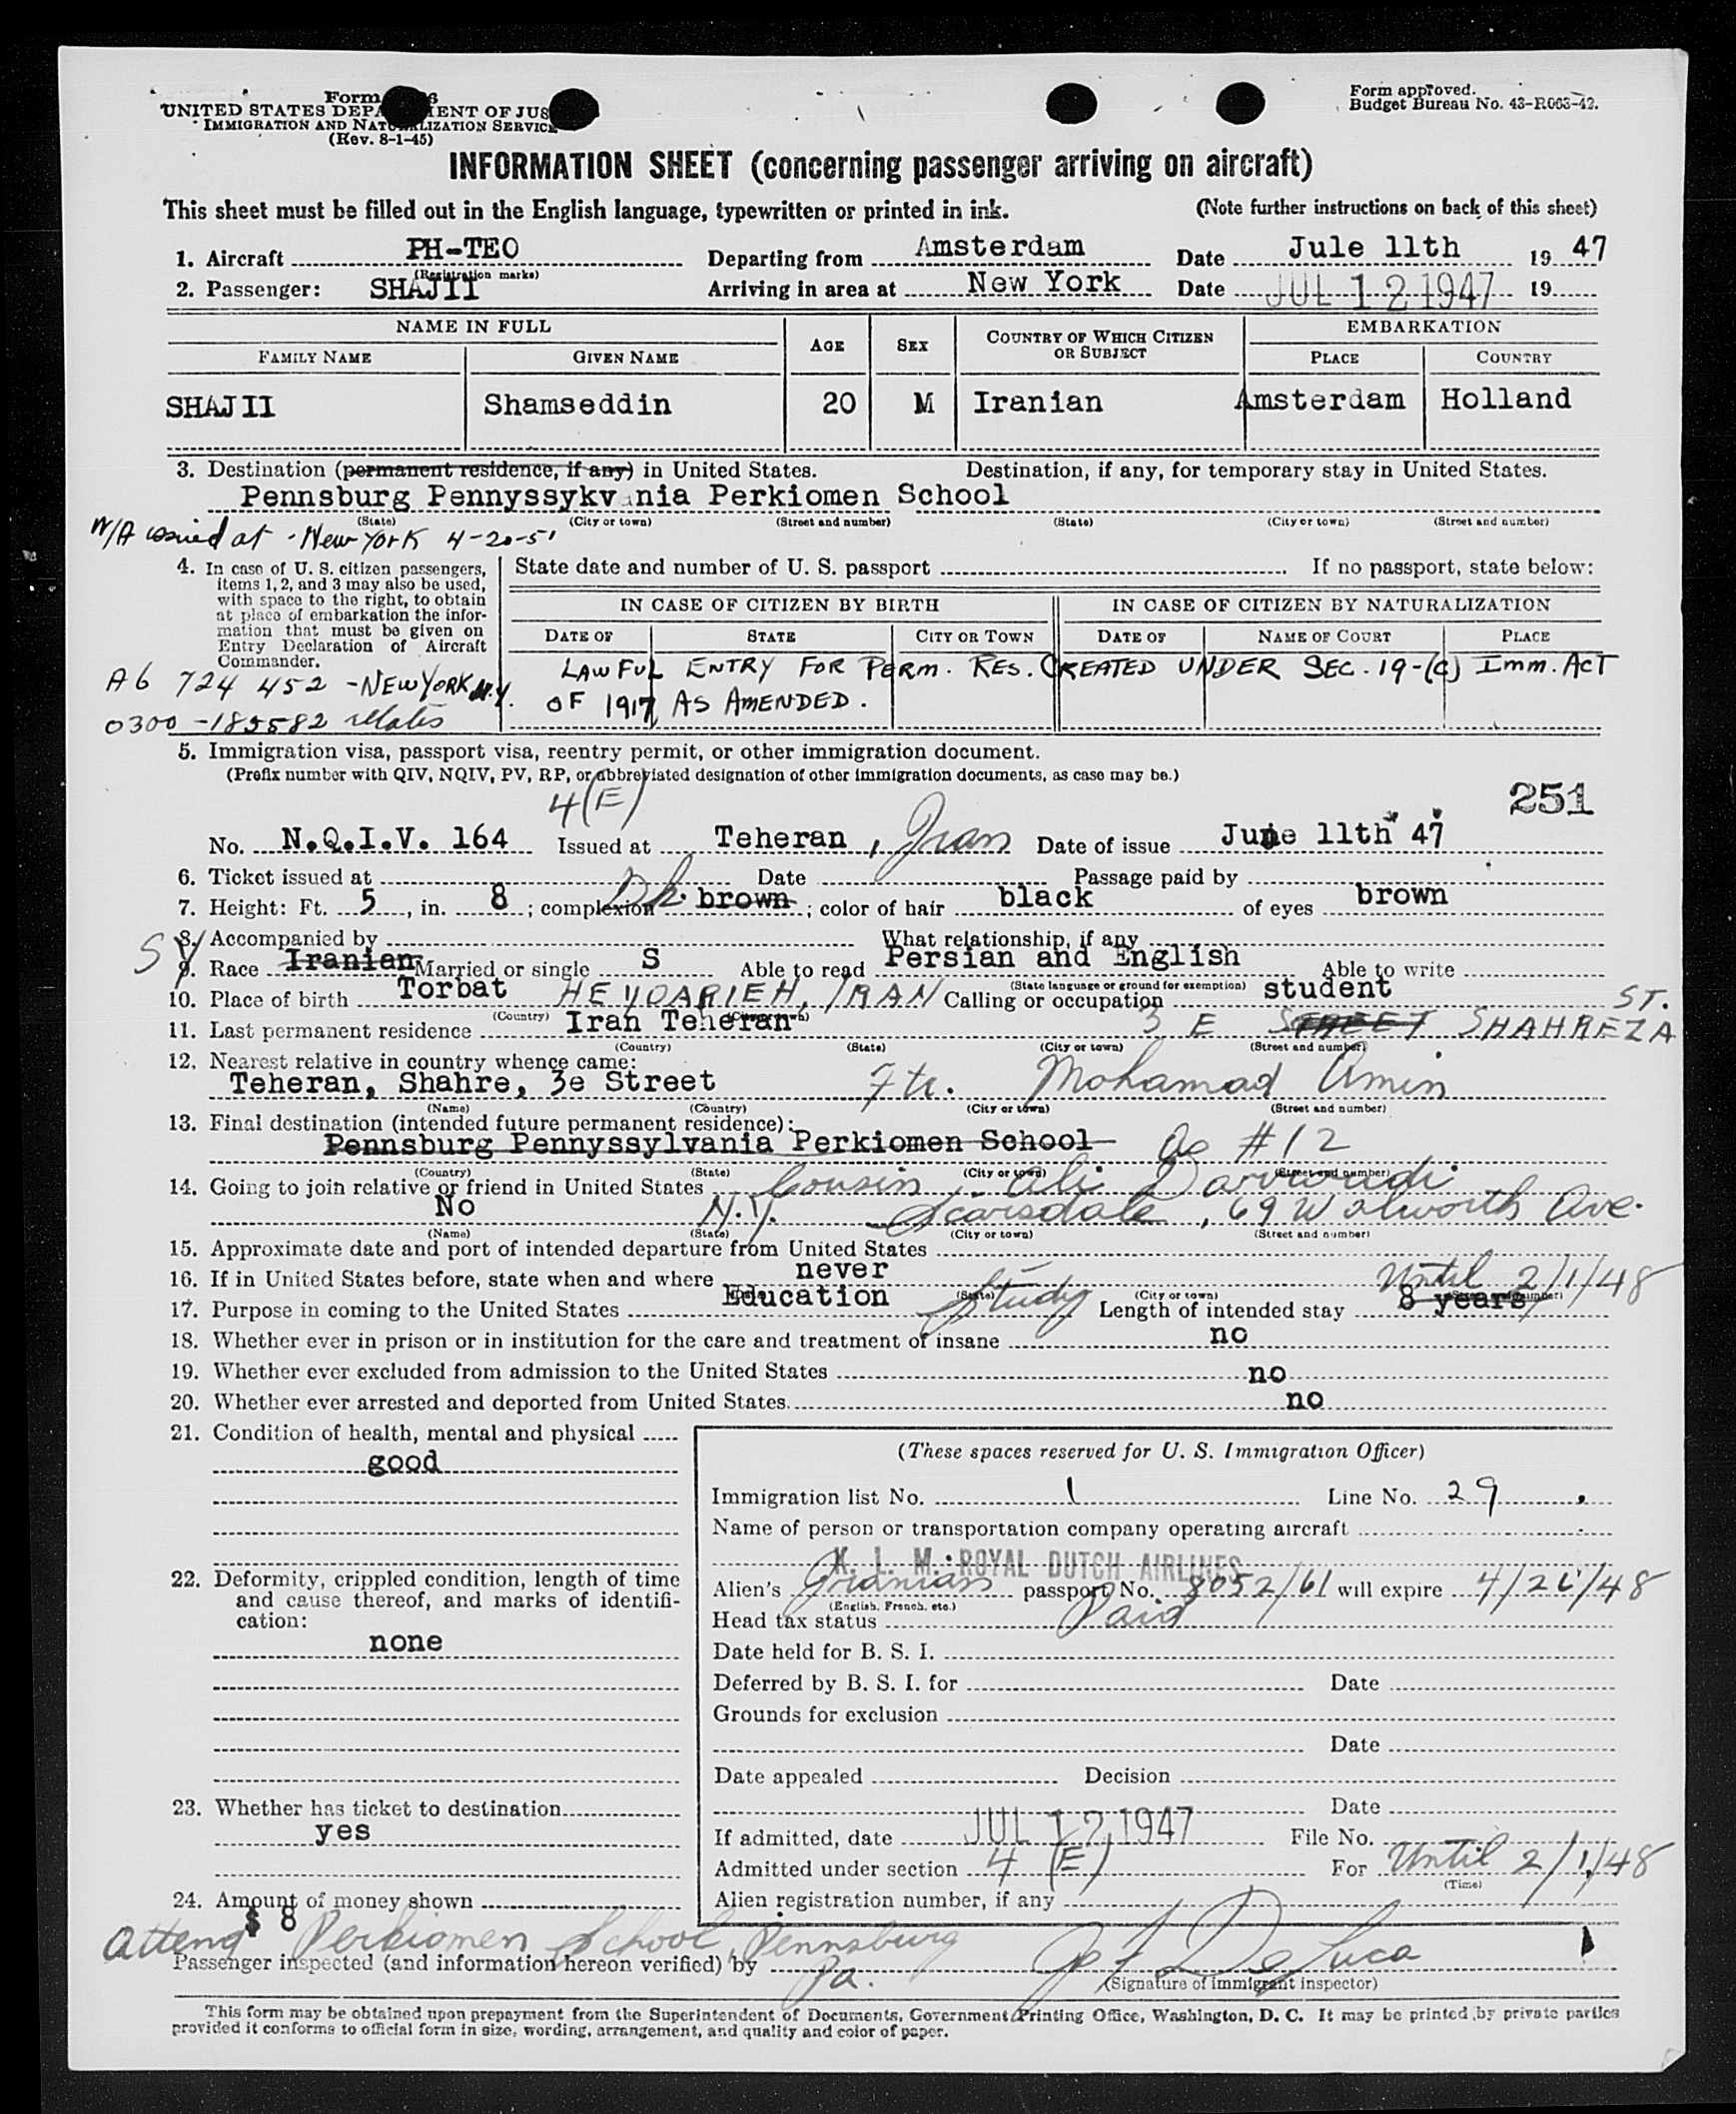 Form
UNITED STATES DEPA ENT OF JUS
IMMIGRATION AND NATURALIZATION SERVICE
(Rev. 8-1-45)
Form approved.
Budget Bureau No. 43-R063-42.
INFORMATION SHEET (concerning passenger arriving on aircraft)
This sheet must be filled out in the English language, typewritten or printed in ink. (Note further instructions on back of this sheet)
1. Aircraft PH-TEO Departing from Amsterdam Date Jule 11th 19 47
(Registration marks)
2. Passenger: SHAJII Arriving in area at New York Date JUL 12 1947 19
NAME IN FULL AGE SEX COUNTRY OF WHICH CITIZEN OR SUBJECT EMBARKATION
FAMILY NAME GIVEN NAME PLACE COUNTRY
SHAJII Shamseddin 20 M Iranian Amsterdam Holland
3. Destination (permanent residence, if any) in United States. Destination, if any, for temporary stay in United States.
Pennsburg Pennyssykvania Perkiomen School
(State) (City or town) (Street and number) (State) (City or town) (Street and number)
W/A issued at New York 4-20-51
4. In case of U. S. citizen passengers, items 1, 2, and 3 may also be used, with space to the right, to obtain at place of embarkation the information that must be given on Entry Declaration of Aircraft Commander.
State date and number of U. S. passport If no passport, state below:
IN CASE OF CITIZEN BY BIRTH IN CASE OF CITIZEN BY NATURALIZATION
DATE OF STATE CITY OR TOWN DATE OF NAME OF COURT PLACE
LAWFUL ENTRY FOR PERM. RES. CREATED UNDER SEC. 19-(c) IMM. ACT
OF 1917 AS AMENDED.
A6 724 452 - NEW YORK N.Y.
0300-185582 relates
5. Immigration visa, passport visa, reentry permit, or other immigration document.
(Prefix number with QIV, NQIV, PV, RP, or abbreviated designation of other immigration documents, as case may be.)
251
4(E)
No. N.Q.I.V. 164 Issued at Teheran, Iran Date of issue June 11th 47
6. Ticket issued at Date Passage paid by
7. Height: Ft. 5, in. 8; complexion Dk. brown; color of hair black of eyes brown
8. Accompanied by What relationship, if any
9. Race Iranian Married or single S Able to read Persian and English Able to write
(State language or ground for exemption)
10. Place of birth Torbat HEYDARIEH, IRAN Calling or occupation student
(Country) (City or town)
11. Last permanent residence Iran Teheran 3 E STREET SHAHREZA ST.
(Country) (State) (City or town) (Street and number)
12. Nearest relative in country whence came:
Teheran, Shahre, 3e Street Ftr. Mohamad Amin
(Name) (Country) (City or town) (Street and number)
13. Final destination (intended future permanent residence):
Pennsburg Pennyssylvania Perkiomen School As #12
(Country) (State) (City or town) (Street and number)
14. Going to join relative or friend in United States Cousin, Ali
No N.Y. Scarsdale, 69 Walworth Ave.
(Name) (State) (City or town) (Street and number)
15. Approximate date and port of intended departure from United States
16. If in United States before, state when and where never
(State) (City or town) (Street and number)
17. Purpose in coming to the United States Education Study Length of intended stay 8 years Until 2/1/48
18. Whether ever in prison or in institution for the care and treatment of insane no
19. Whether ever excluded from admission to the United States no
20. Whether ever arrested and deported from United States. no
21. Condition of health, mental and physical
good
22. Deformity, crippled condition, length of time and cause thereof, and marks of identification:
none
23. Whether has ticket to destination
yes
24. Amount of money shown
$ 8
(These spaces reserved for U. S. Immigration Officer)
Immigration list No. 1 Line No. 29
Name of person or transportation company operating aircraft
K. L. M. ROYAL DUTCH AIRLINES
Alien's Iranian passport No. 8052/61 will expire 4/26/48
(English, French, etc.)
Head tax status Paid
Date held for B. S. I.
Deferred by B. S. I. for Date
Grounds for exclusion
Date
Date appealed Decision
Date
If admitted, date JUL 12 1947 File No.
Admitted under section 4 (E) For Until 2/1/48
(Time)
Alien registration number, if any
Attend Perkiomen School, Pennsburg Pa.
Passenger inspected (and information hereon verified) by De Luca
(Signature of immigrant inspector)
This form may be obtained upon prepayment from the Superintendent of Documents, Government Printing Office, Washington, D. C. It may be printed by private parties
provided it conforms to official form in size, wording, arrangement, and quality and color of paper.